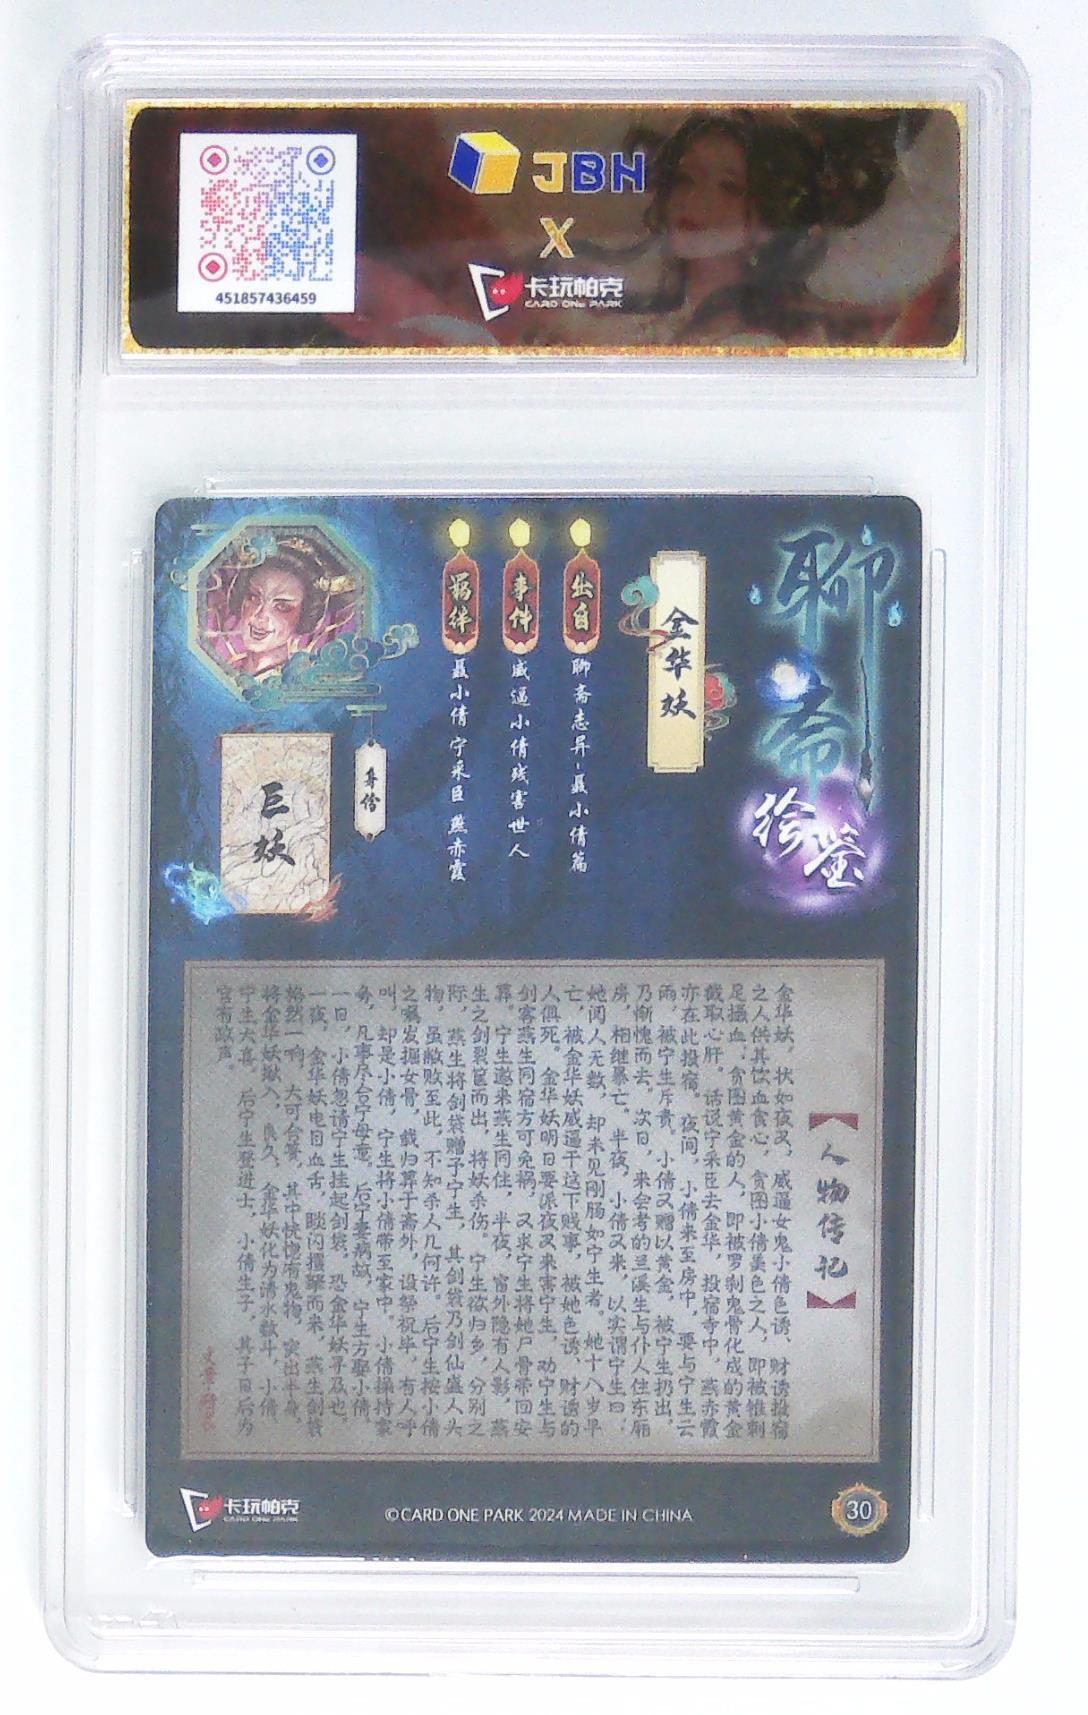 451857436459
JBH
X
卡玩帕克
CARD ONE PARK
聊斋
绘鉴
金华妖
出自
聊斋志异-聂小倩篇
事件
威逼小倩残害世人
羁绊
聂小倩 宁采臣 燕赤霞
身份
巨妖
【人物传记】
金华妖，状如夜叉，威逼女鬼小倩色诱、财诱投宿
之人供其饮血食心，贪图小倩美色之人，即被锥刺
足摄血；贪图黄金的人，即被罗刹鬼骨化成的黄金
截取心肝。话说宁采臣去金华，投宿寺中，燕赤霞
亦在此投宿。夜间，小倩来至房中，要与宁生云
雨，被宁生斥责。小倩又赠以黄金，被宁生扔出，
乃惭愧而去。次日，来会考的兰溪生与仆人住东厢
房，相继暴亡。半夜，小倩又来，以实谓宁生曰：
她阅人无数，却未见刚肠如宁生者。她十八岁早
亡，被金华妖威逼干这下贱事，被她色诱、财诱的
人俱死。金华妖明日要派夜叉来害宁生，劝宁生与
剑客燕生同宿方可免祸，又求宁生将她尸骨带回安
葬。宁生邀来燕生同住，半夜，窗外隐有人影，燕
生之剑裂箧而出，将妖杀伤。宁生欲归乡，分别之
际，燕生将剑袋赠予宁生，其剑袋乃剑仙盛人头
物，虽敝败至此，不知杀人几何许。后宁生按小倩
之嘱发掘女骨，载归葬于斋外，设祭祝毕，有人呼
叫，却是小倩，宁生将小倩带至家中。小倩操持家
务，凡事尽合宁母意。后宁妻病故，宁生方娶小倩。
一日，小倩忽请宁生挂起剑袋，恐金华妖寻及也。
一夜，金华妖电目血舌，睒闪攫拏而来，燕生剑袋
格然一响，大可合篑，其中恍惚有鬼物，突出半身，
将金华妖揪入，良久，金华妖化为清水数斗，小倩、
宁生大喜。后宁生登进士，小倩生子，其子日后为
官有政声。
卡玩帕克
CARD ONE PARK
©CARD ONE PARK 2024 MADE IN CHINA
30